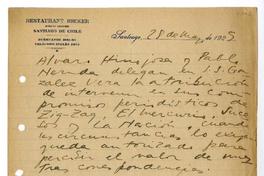 RESTAURANT BECKER
SANTIAGO DE CHILE
Santiago, 28 de Mayo de 1925
Alvaro Hinojosa y Pablo
Neruda delegan en J. S. Gon-
zalez Vera la atribución
de intervenir en sus com-
promisos periodísticos de
Zig-Zag, El Mercurio, Suce-
sos y La Nación. Cuando
las circunstancias lo exijan
queda autorizado para
percibir el valor de
tres correspondencias.